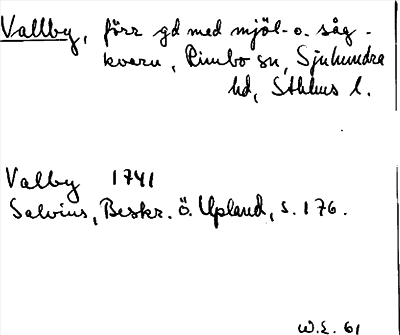 Vallby, förr gd med mjöl- o. såg-
kvarn, Rimbo sn, Sjuhundra
hd, Sthlms l.
Valby 1741
Salvius, Beskr. ö. Upland, s. 176.
W.E. 61